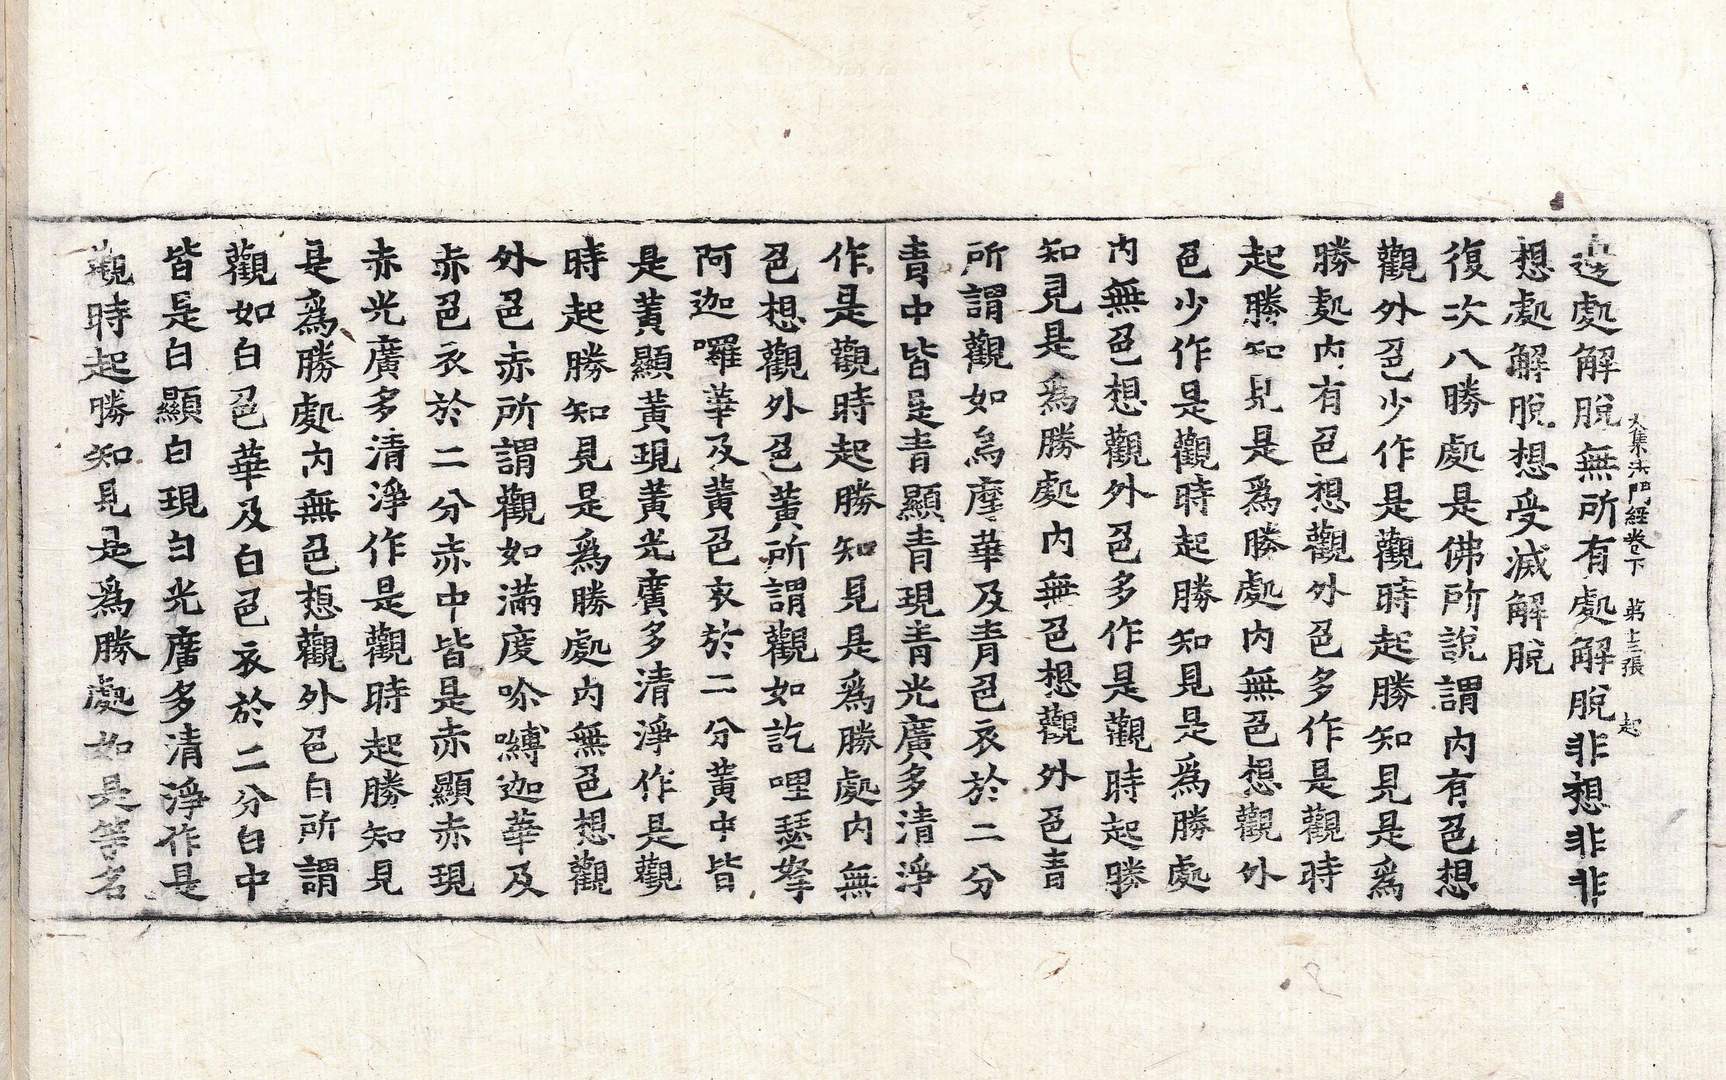 大集法門経卷下　第十三張　起
邊處解脫無所有處解脫非想非非
想處解脫想受滅解脫
復次八勝處是佛所說謂內有色想
觀外色少作是觀時起勝知見是爲
勝處內有色想觀外色多作是觀時
起勝知見是爲勝處內無色想觀外
色少作是觀時起勝知見是爲勝處
內無色想觀外色多作是觀時起勝
知見是爲勝處內無色想觀外色青
所謂觀如烏摩華及青色衣於二分
青中皆是青顯青現青光廣多清淨
作是觀時起勝知見是爲勝處內無
色想觀外色黃所謂觀如訖哩瑟拏
阿迦囉華及黃色衣於二分黃中皆
是黃顯黃現黃光廣多清淨作是觀
時起勝知見是爲勝處內無色想觀
外色赤所謂觀如滿度吟嚩迦華及
赤色衣於二分赤中皆是赤顯赤現
赤光廣多清淨作是觀時起勝知見
是爲勝處內無色想觀外色白所謂
觀如白色華及白色衣於二分白中
皆是白顯白現白光廣多清淨作是
觀時起勝知見是爲勝處如是等名